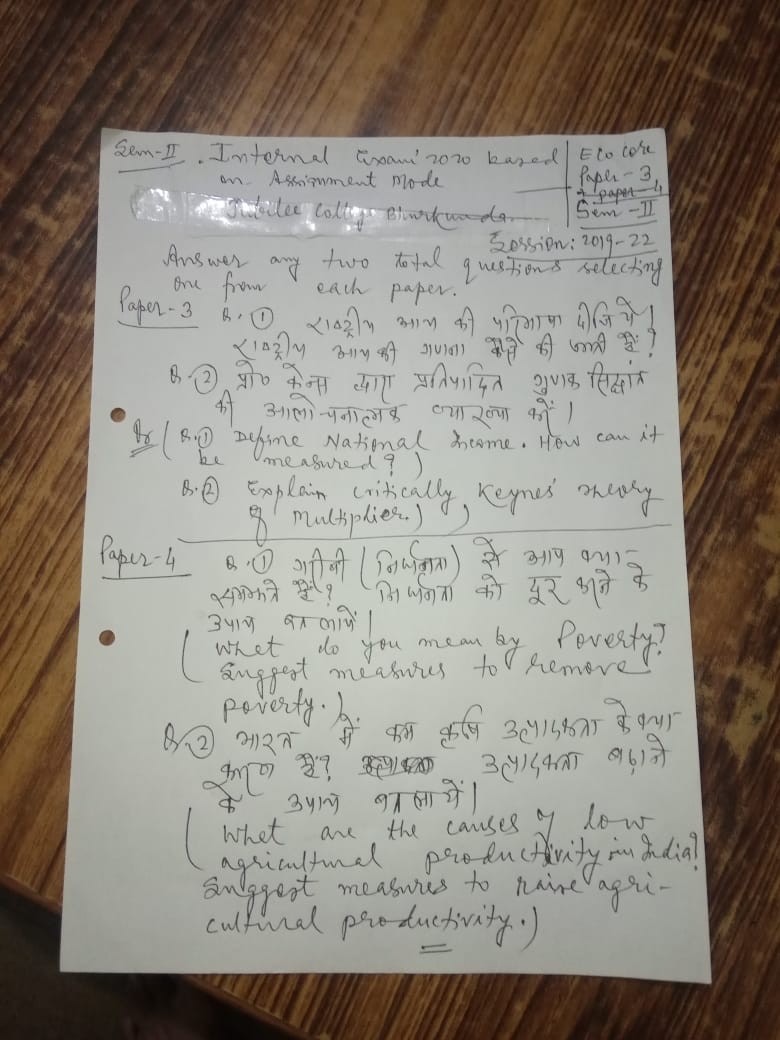 Sem-II. Internal Exam' 2020 based
on Assignment Mode
Jubilee College Bhurkunda
Eco core
Paper-3
+ paper-4
Sem-II
Session: 2019-22
Answer any two total questions selecting
one from each paper.
Paper-3 Q.① राष्ट्रीय आय की परिभाषा दीजिये।
राष्ट्रीय आय की गणना कैसे की जाती है?
Q.② प्रो० केन्स द्वारा प्रतिपादित गुणक सिद्धांत
की आलोचनात्मक व्याख्या करें।
Or (Q.① Define National Income. How can it
be measured?)
Q.② Explain critically Keynes' theory
of Multiplier.)
Paper-4 Q.① गरीबी (निर्धनता) से आप क्या-
समझते हैं? निर्धनता को दूर करने के
उपाय बतलायें।
(What do you mean by Poverty?
Suggest measures to remove
poverty.)
Q.② भारत में कम कृषि उत्पादकता के क्या-
कारण हैं? उत्पादकता बढ़ाने
के उपाय बतलायें।
(What are the causes of low
agricultural productivity in India?
Suggest measures to raise agri-
cultural productivity.)